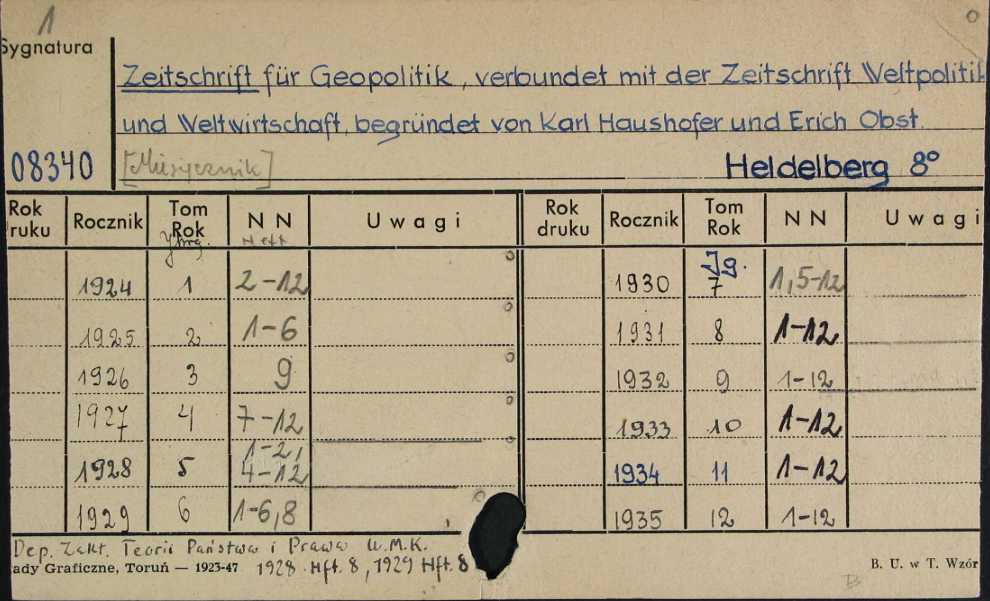 1
Sygnatura
Zeitschrift für Geopolitik, verbundet mit der Zeitschrift Weltpolitik
und Weltwirtschaft, begründet von Karl Haushofer und Erich Obst.
08340 [Miesięcznik] Heldelberg 8º
Rok ruku Rocznik Tom Rok N N Uwagi Rok druku Rocznik Tom Rok N N Uwagi
Jhrg. Heft
1924 1 2-12 1930 Jg. 7 1,5-12
1925 2 1-6 1931 8 1-12
1926 3 9 1932 9 1-12
1927 4 7-12 1933 10 1-12
1928 5 1-2, 4-12 1934 11 1-12
1929 6 1-6,8 1935 12 1-12
Dep. Zakł. Teorii Państwa i Prawa U.M.K.
ady Graficzne, Toruń — 1923-47 1928 Hft. 8, 1929 Hft. 8 B. U. w T. Wzór